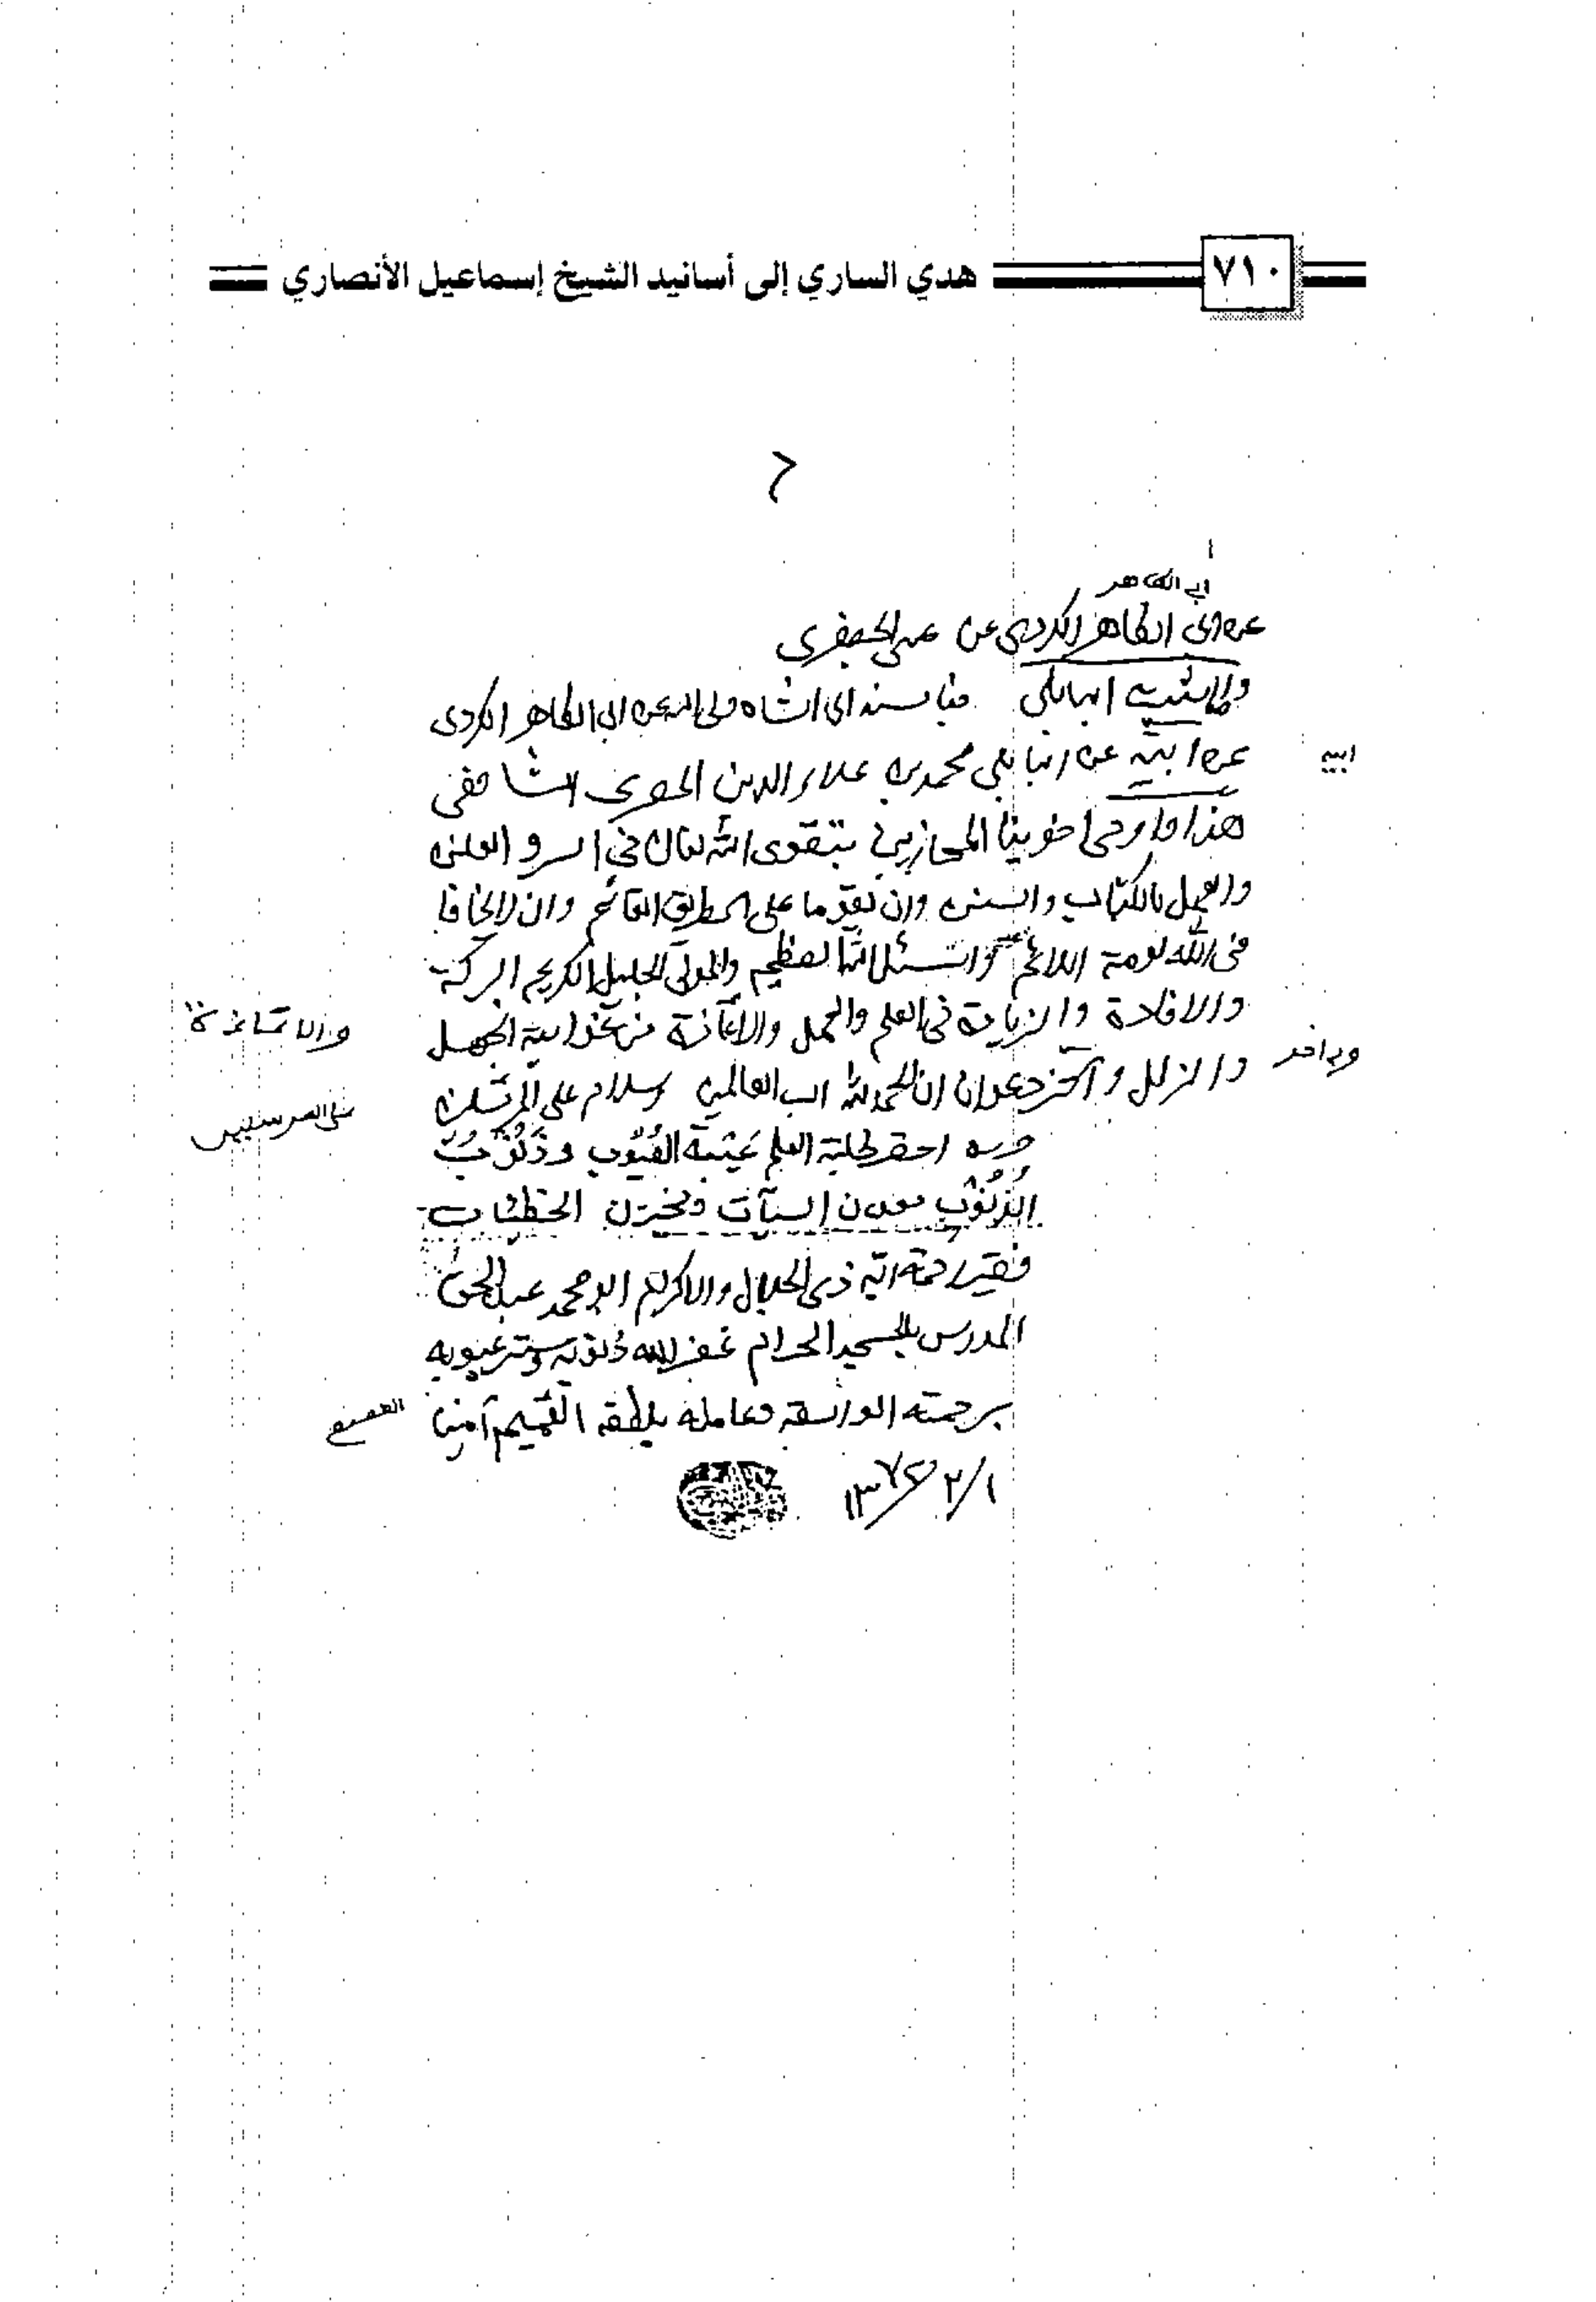 ٧١٠
هدي الساري إلى أسانيد الشيخ إسماعيل الأنصاري
٦
ابي الطاهر
عن ابي الطاهر الكردي عن الجعفري
البابلي فبا سند الى الشاه ولى الله عن ابى الطاهر الكردى
عن ابيه عن البابلي محمد بن علاء الدين المصرى الشافعى
ابيه
هذا واوصى اخوينا المجازين بتقوى الله تعالى في السر والعلن
والعمل بالكتاب والسنن وان يقوما على الطريق القائم وان لا يخافا
فى الله لومة اللائم واسئل الله العظيم والمولى الجليل الكريم البركة
والافادة والزيادة فى العلم والعمل والاعاذة من غوايته الجهل
والاعاذة
والزلل وآخر دعوانا ان الحمد لله رب العالمين وسلام على المرسلين
وآخر
على المرسلين
حرره احقر طلبة العلم عيبة العيوب وذنوب
الذنوب معدن السيآت ومخزن الخطئات
فقير رحمة ربه ذى الجلال والاكرام ابو محمد عبد الحق
المدرس بالمسجد الحرام غفر الله ذنوبه وستر عيوبه
برحمته الواسعة وعامله بلطفه العميم آمين
العميم
١/٢